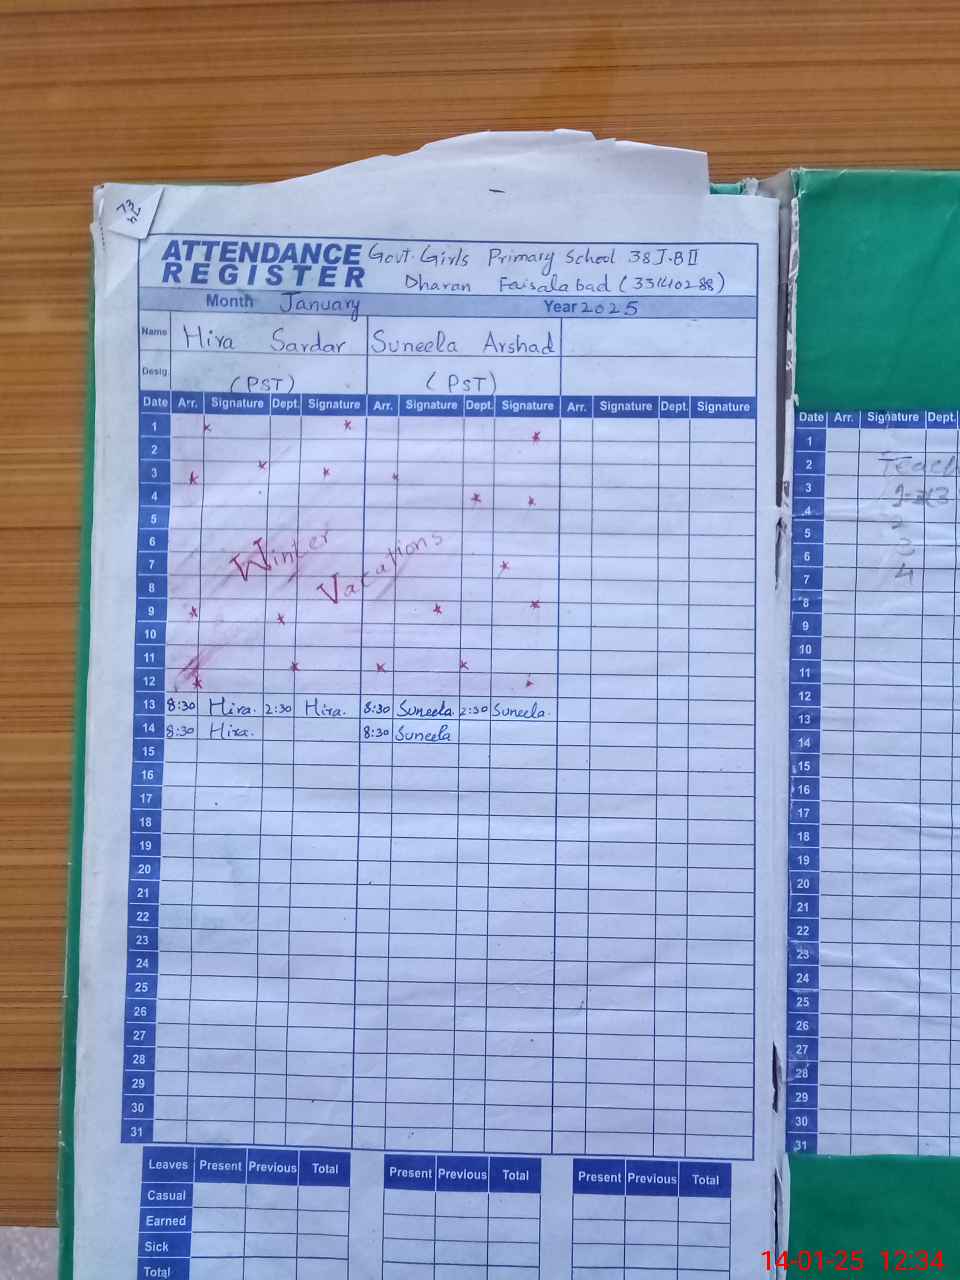 73
ATTENDANCE REGISTER
Govt. Girls Primary School 38 J.B II
Dharan Faisalabad (33140288)
Month January Year 2025
Name Hira Sardar Suneela Arshad
Desig. (PST) (PST)
Date Arr. Signature Dept. Signature Arr. Signature Dept. Signature Arr. Signature Dept. Signature
1
2
3
4
5
6
7
8
9
10
11
12
Winter Vacations
13 8:30 Hira. 2:30 Hira. 8:30 Suneela. 2:30 Suneela.
14 8:30 Hira. 8:30 Suneela
15
16
17
18
19
20
21
22
23
24
25
26
27
28
29
30
31
Leaves Present Previous Total Present Previous Total Present Previous Total
Casual
Earned
Sick
Total
Date Arr. Signature Dept.
1
2 Teach
3
4 2
5 3
6
7 4
8
9
10
11
12
13
14
15
16
17
18
19
20
21
22
23
24
25
26
27
28
29
30
31
14-01-25 12:34